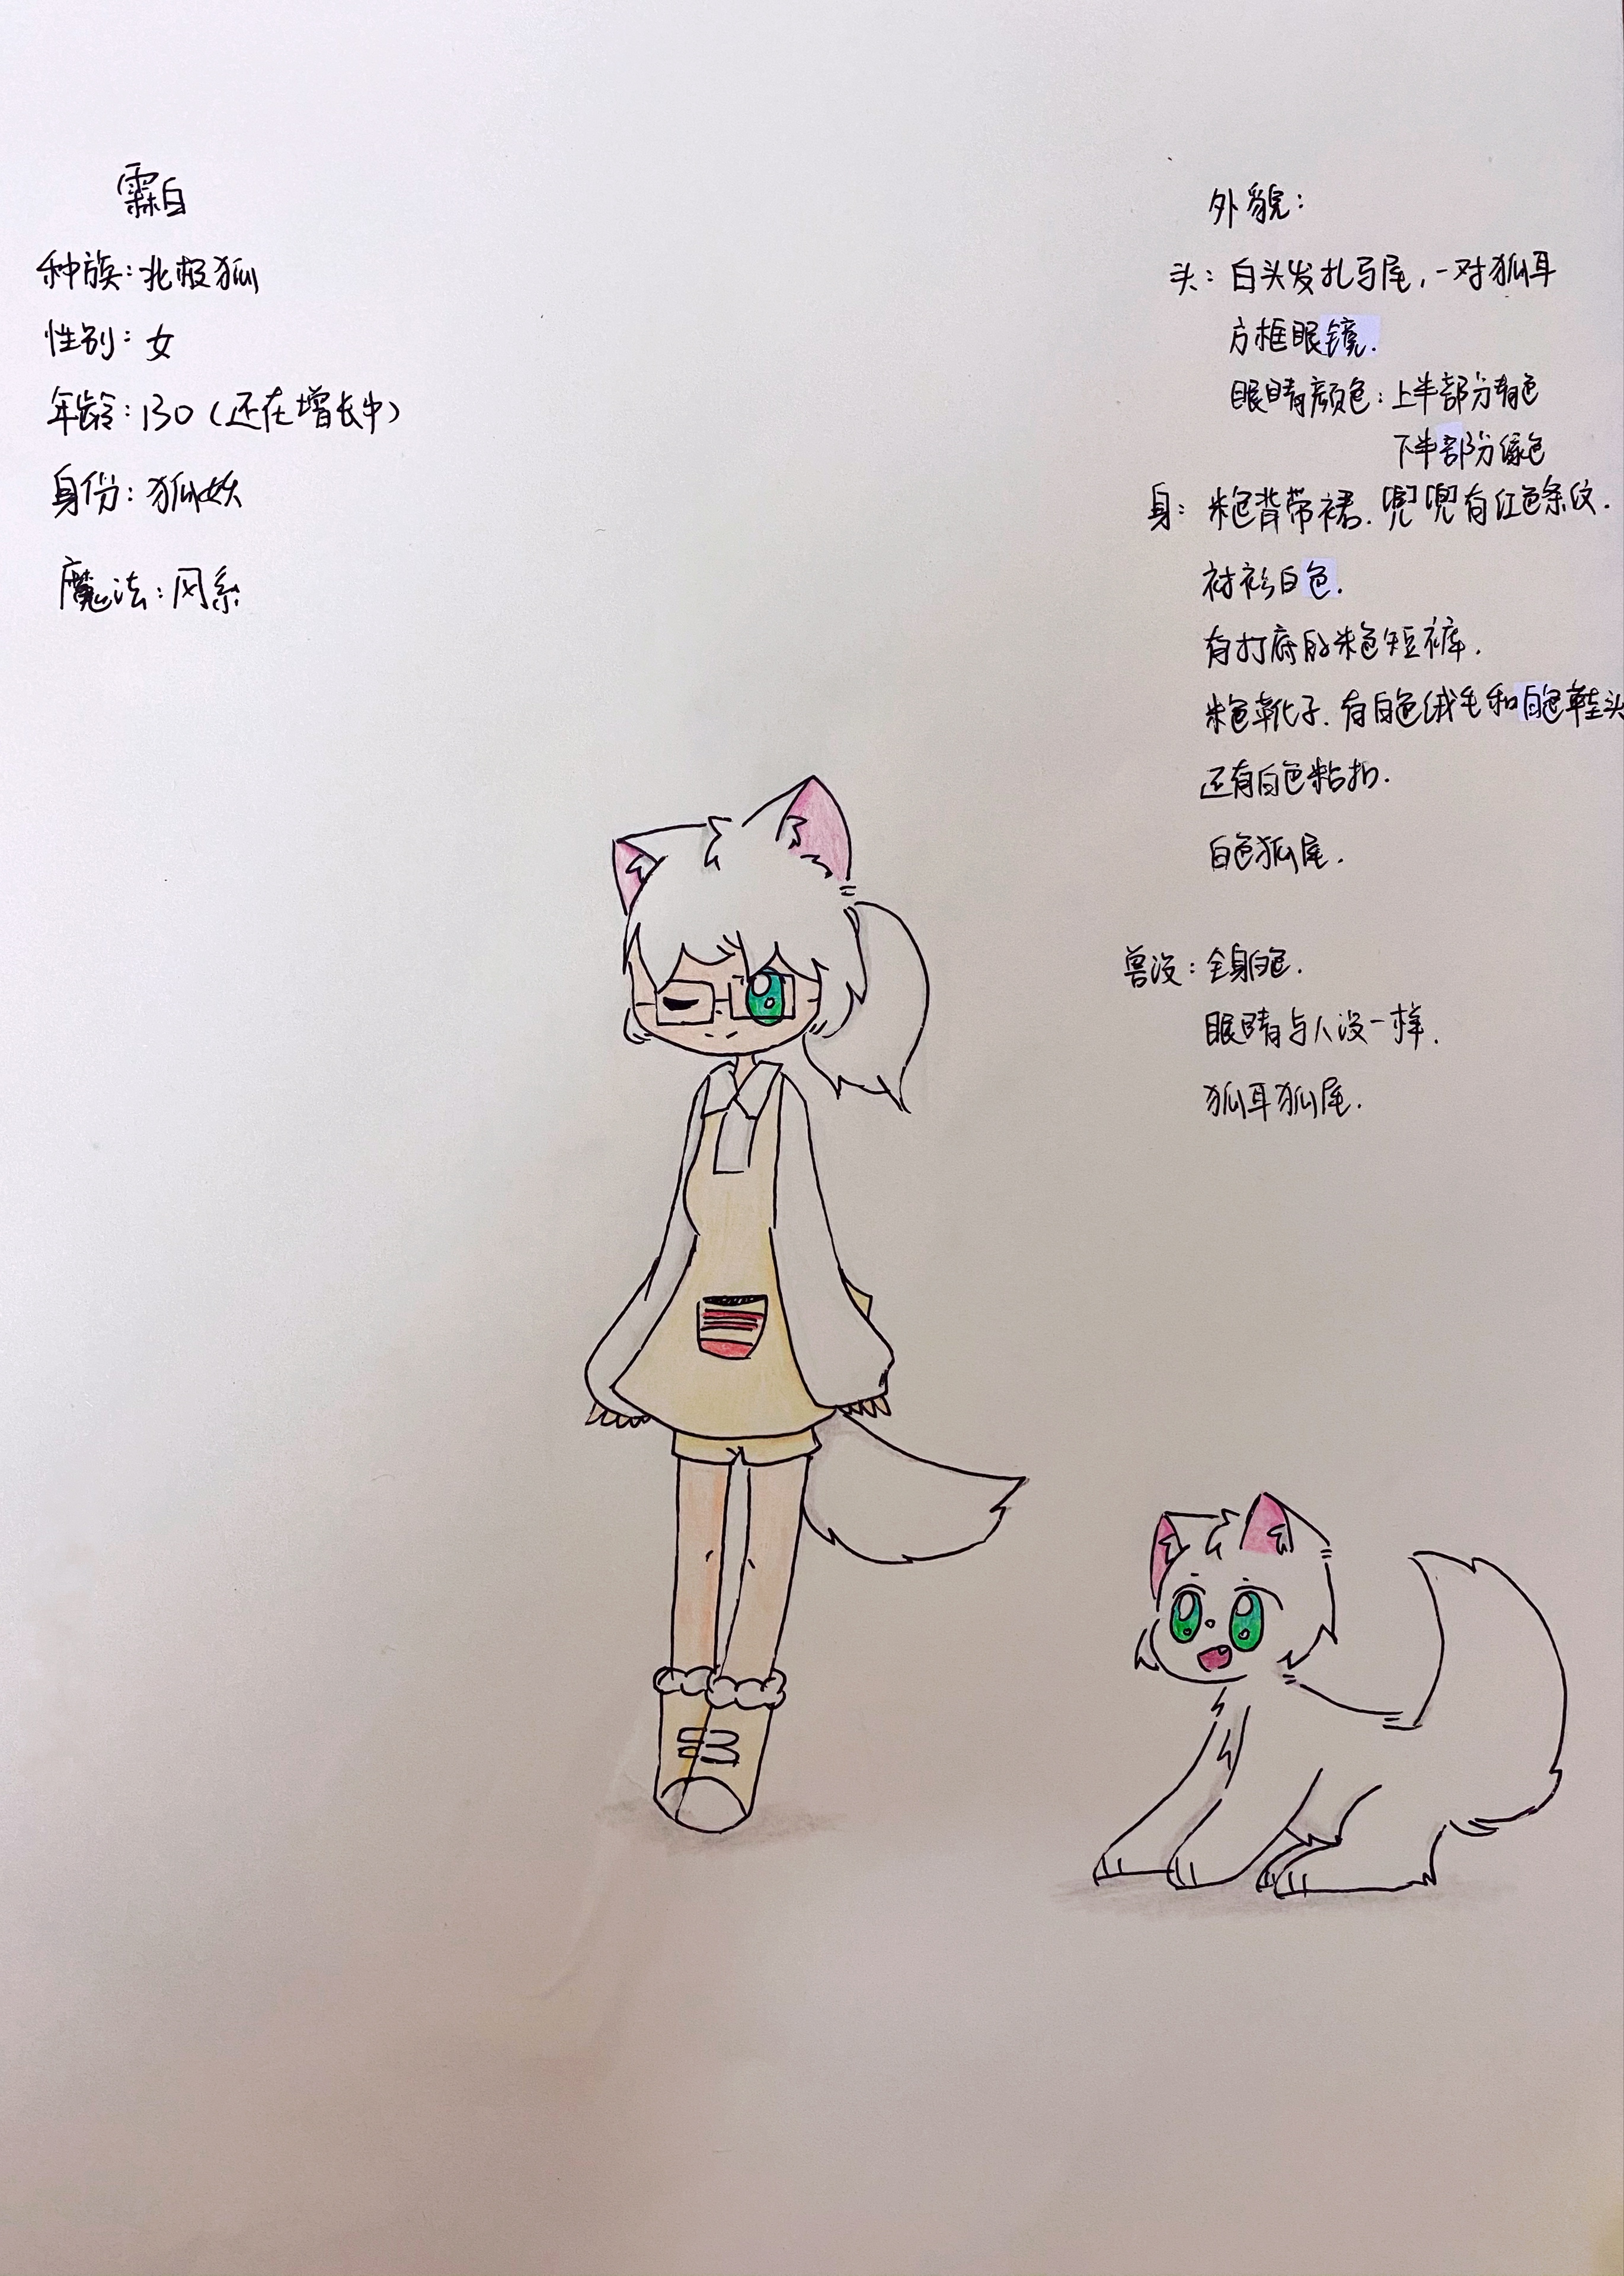 霖白
种族：北极狐
性别：女
年龄：130（还在增长中）
身份：狐妖
魔法：风系
外貌：
头：白头发扎马尾，一对狐耳
方框眼镜.
眼睛颜色：上半部分青色
下半部分绿色
身：米色背带裙.兜兜有红色条纹.
衬衫白色.
有打底的米色短裤.
米色靴子.有白色绒毛和白色鞋头
还有白色粘扣.
白色狐尾.
兽设：全身白色.
眼睛与人设一样.
狐耳狐尾.